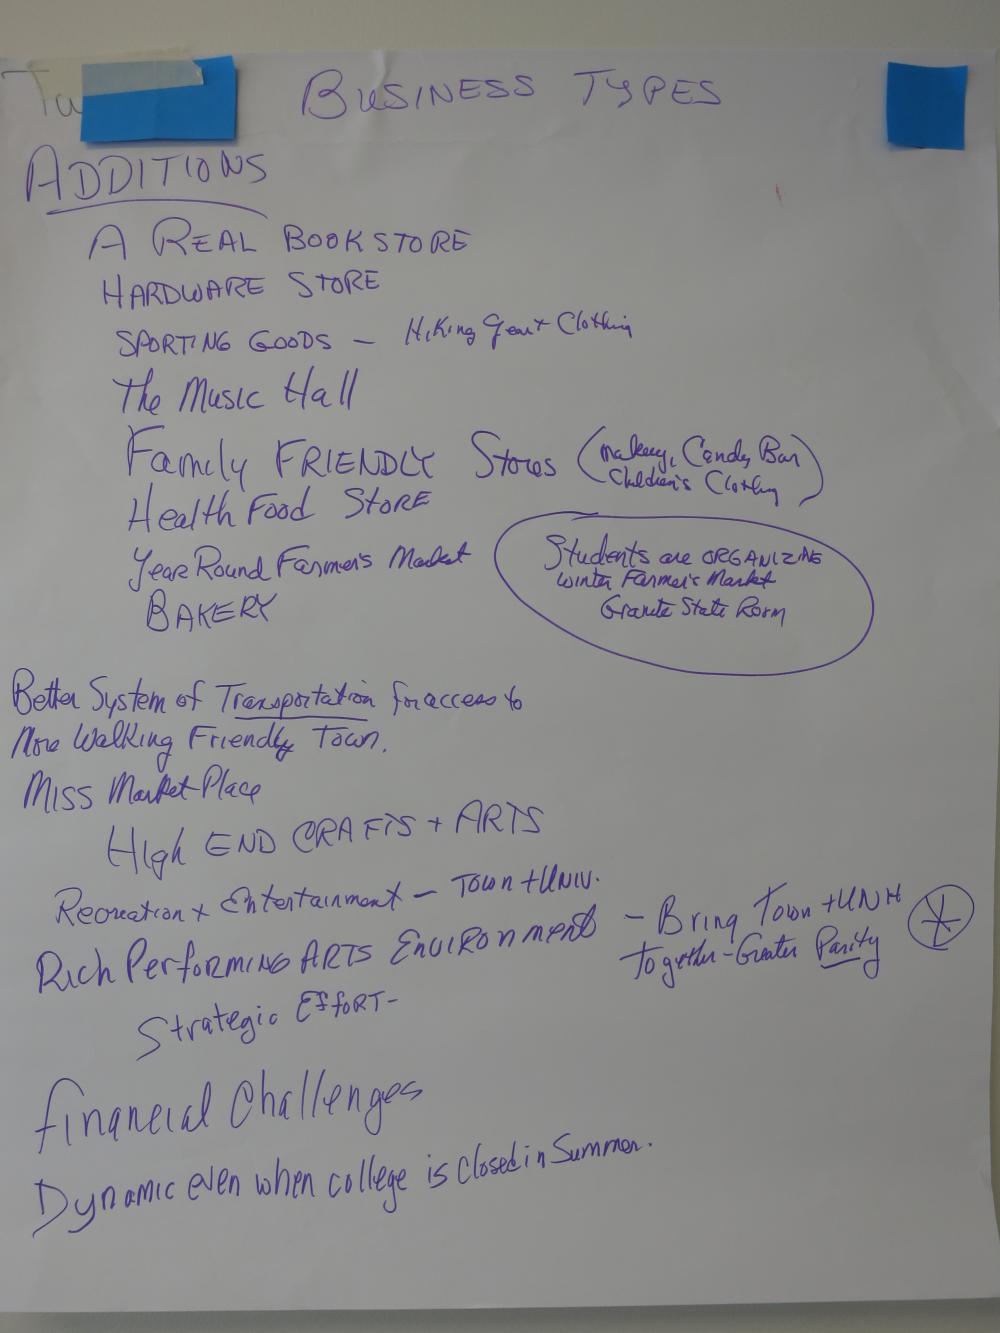 BUSINESS TYPES
ADDITIONS
A REAL BOOKSTORE
HARDWARE STORE
SPORTING GOODS — Hiking Gear + Clothing
The Music Hall
Family FRIENDLY Stores (
Candy Bar
Children's Clothing)
Health Food STORE
Year Round Farmer's Market
Students are ORGANIZING
winter Farmer's Market
Granite State Room
BAKERY
Better System of Transportation for access to
More Walking Friendly Town.
MISS Market Place
High END CRAFTS + ARTS
Recreation + Entertainment — Town + UNIV.
Rich PERFORMING ARTS ENVIRONMENT — Bring Town + UNH
together - Greater Parity
Strategic EffORT -
Financial Challenges
Dynamic even when college is closed in Summer.